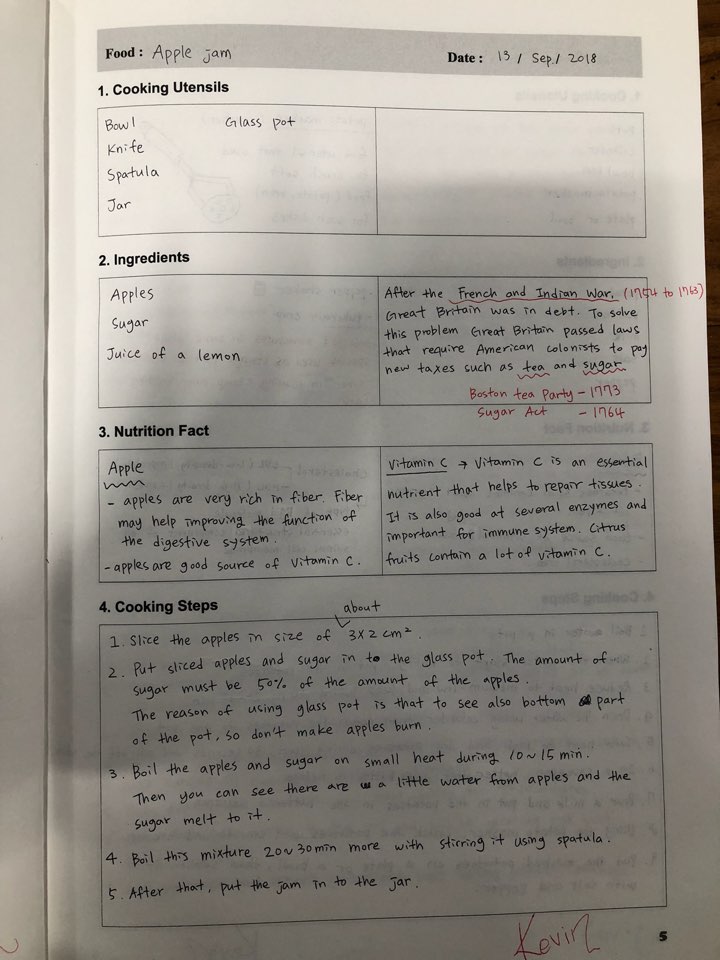 Food : Apple jam
Date : 13 / Sep. / 2018
1. Cooking Utensils
Bowl Glass pot
Knife
Spatula
Jar
2. Ingredients
Apples
Sugar
Juice of a lemon
After the French and Indian War. (1754 to 1763)
Great Britain was in debt. To solve
this problem Great Britain passed laws
that require American colonists to pay
new taxes such as tea and sugar.
Boston tea Party - 1773
Sugar Act - 1764
3. Nutrition Fact
Apple
- apples are very rich in fiber. Fiber
may help improving the function of
the digestive system.
- apples are good source of vitamin C.
Vitamin C → Vitamin C is an essential
nutrient that helps to repair tissues.
It is also good at several enzymes and
important for immune system. Citrus
fruits contain a lot of vitamin C.
4. Cooking Steps
about
1. Slice the apples in size of 3X2 cm².
2. Put sliced apples and sugar in to the glass pot. The amount of
sugar must be 50% of the amount of the apples.
The reason of using glass pot is that to see also bottom part
of the pot, so don't make apples burn.
3. Boil the apples and sugar on small heat during 10~15 min.
Then you can see there are a little water from apples and the
sugar melt to it.
4. Boil this mixture 20~30min more with stirring it using spatula.
5. After that, put the jam in to the jar.
Kevin
5